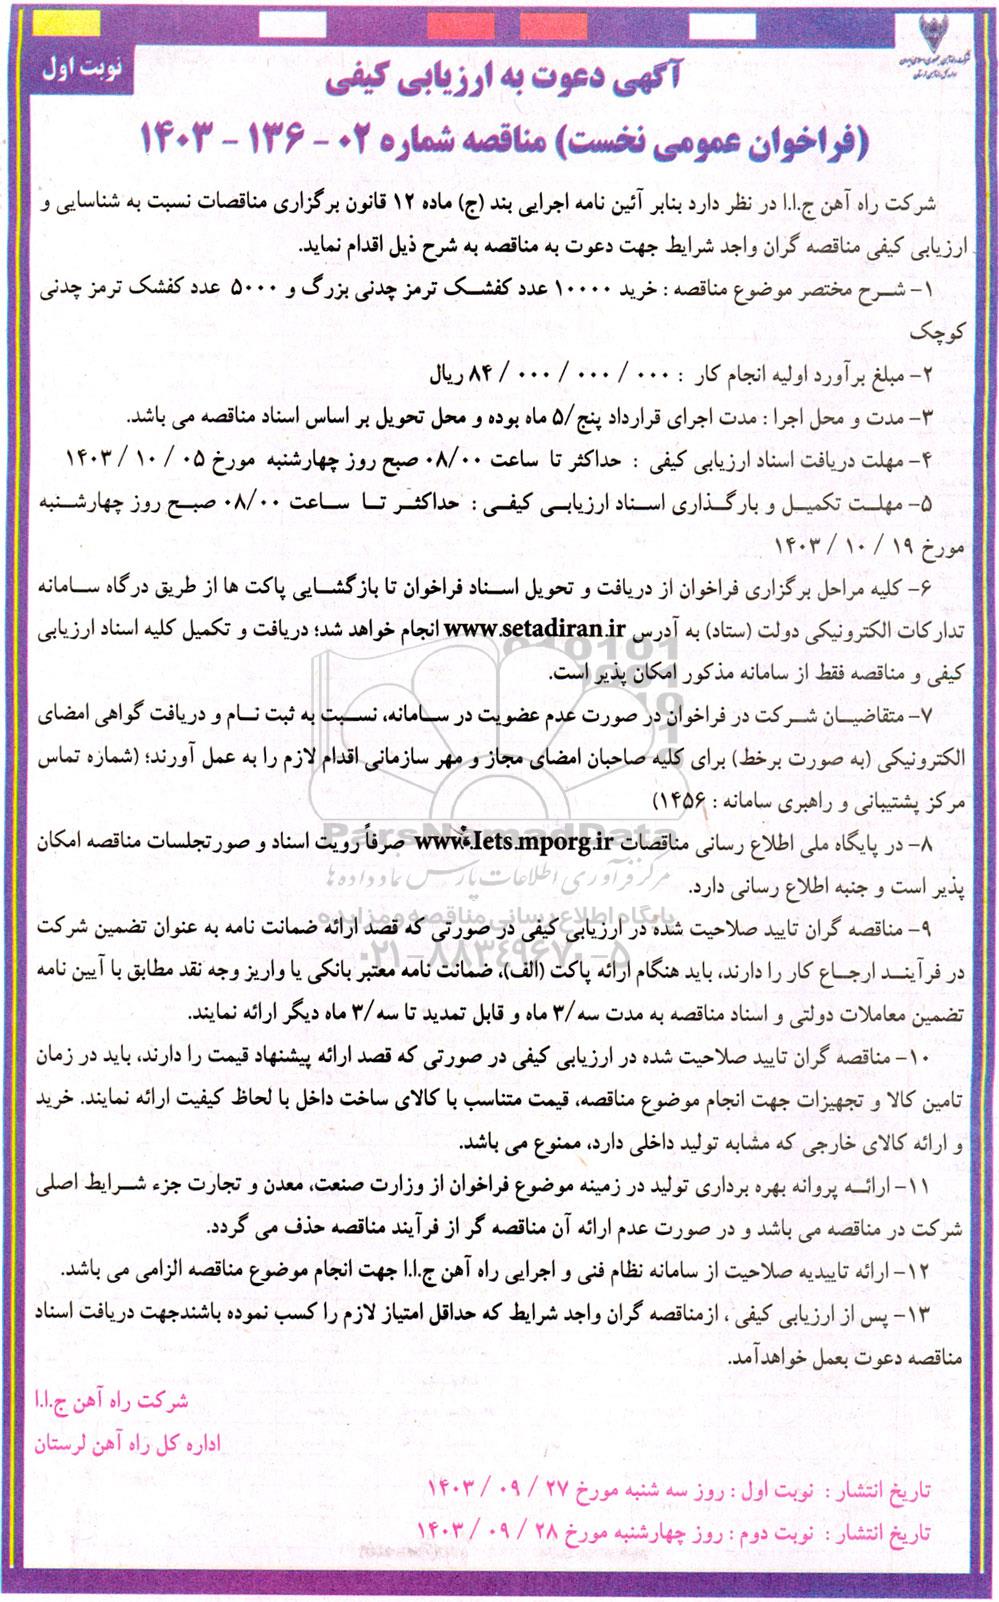 نوبت اول
آگهی دعوت به ارزیابی کیفی
(فراخوان عمومی نخست) مناقصه شماره ۰۲ - ۱۳۶ - ۱۴۰۳
شرکت راه آهن ج.ا.ا در نظر دارد بنابر آئین نامه اجرایی بند (ج) ماده ۱۲ قانون برگزاری مناقصات نسبت به شناسایی و
ارزیابی کیفی مناقصه گران واجد شرایط جهت دعوت به مناقصه به شرح ذیل اقدام نماید.
۱- شرح مختصر موضوع مناقصه : خرید ۱۰۰۰۰ عدد کفشک ترمز چدنی بزرگ و ۵۰۰۰ عدد کفشک ترمز چدنی
کوچک
۲- مبلغ برآورد اولیه انجام کار : ۰۰۰ / ۰۰۰ / ۰۰۰ / ۸۴ ریال
۳- مدت و محل اجرا : مدت اجرای قرارداد پنج/۵ ماه بوده و محل تحویل بر اساس اسناد مناقصه می باشد.
۴- مهلت دریافت اسناد ارزیابی کیفی : حداکثر تا ساعت ۰۸/۰۰ صبح روز چهارشنبه مورخ ۰۵ / ۱۰ / ۱۴۰۳
۵- مهلت تکمیل و بارگذاری اسناد ارزیابی کیفی : حداکثر تا ساعت ۰۸/۰۰ صبح روز چهارشنبه
مورخ ۱۹ / ۱۰ / ۱۴۰۳
۶- کلیه مراحل برگزاری فراخوان از دریافت و تحویل اسناد فراخوان تا بازگشایی پاکت ها از طریق درگاه سامانه
تدارکات الکترونیکی دولت (ستاد) به آدرس www.setadiran.ir انجام خواهد شد؛ دریافت و تکمیل کلیه اسناد ارزیابی
کیفی و مناقصه فقط از سامانه مذکور امکان پذیر است.
۷- متقاضیان شرکت در فراخوان در صورت عدم عضویت در سامانه، نسبت به ثبت نام و دریافت گواهی امضای
الکترونیکی (به صورت برخط) برای کلیه صاحبان امضای مجاز و مهر سازمانی اقدام لازم را به عمل آورند؛ (شماره تماس
مرکز پشتیبانی و راهبری سامانه : ۱۴۵۶)
ParsNamadData
۸- در پایگاه ملی اطلاع رسانی مناقصات www.Iets.mporg.ir صرفاً رویت اسناد و صورتجلسات مناقصه امکان
مرکز فرآوری اطلاعات پارس نماد داده ها
پذیر است و جنبه اطلاع رسانی دارد.
پایگاه اطلاع رسانی مناقصه و مزایده
۹- مناقصه گران تایید صلاحیت شده در ارزیابی کیفی در صورتی که قصد ارائه ضمانت نامه به عنوان تضمین شرکت
۰۲۱-۸۸۳۴۹۶۷۰-۵
در فرآیند ارجاع کار را دارند، باید هنگام ارائه پاکت (الف)، ضمانت نامه معتبر بانکی یا واریز وجه نقد مطابق با آیین نامه
تضمین معاملات دولتی و اسناد مناقصه به مدت سه/۳ ماه و قابل تمدید تا سه/۳ ماه دیگر ارائه نمایند.
۱۰- مناقصه گران تایید صلاحیت شده در ارزیابی کیفی در صورتی که قصد ارائه پیشنهاد قیمت را دارند، باید در زمان
تامین کالا و تجهیزات جهت انجام موضوع مناقصه، قیمت متناسب با کالای ساخت داخل با لحاظ کیفیت ارائه نمایند. خرید
و ارائه کالای خارجی که مشابه تولید داخلی دارد، ممنوع می باشد.
۱۱- ارائه پروانه بهره برداری تولید در زمینه موضوع فراخوان از وزارت صنعت، معدن و تجارت جزء شرایط اصلی
شرکت در مناقصه می باشد و در صورت عدم ارائه آن مناقصه گر از فرآیند مناقصه حذف می گردد.
۱۲- ارائه تاییدیه صلاحیت از سامانه نظام فنی و اجرایی راه آهن ج.ا.ا جهت انجام موضوع مناقصه الزامی می باشد.
۱۳- پس از ارزیابی کیفی ، ازمناقصه گران واجد شرایط که حداقل امتیاز لازم را کسب نموده باشندجهت دریافت اسناد
مناقصه دعوت بعمل خواهدآمد.
شرکت راه آهن ج.ا.ا
اداره کل راه آهن لرستان
تاریخ انتشار : نوبت اول : روز سه شنبه مورخ ۲۷ / ۰۹ / ۱۴۰۳
تاریخ انتشار : نوبت دوم : روز چهارشنبه مورخ ۲۸ / ۰۹ / ۱۴۰۳